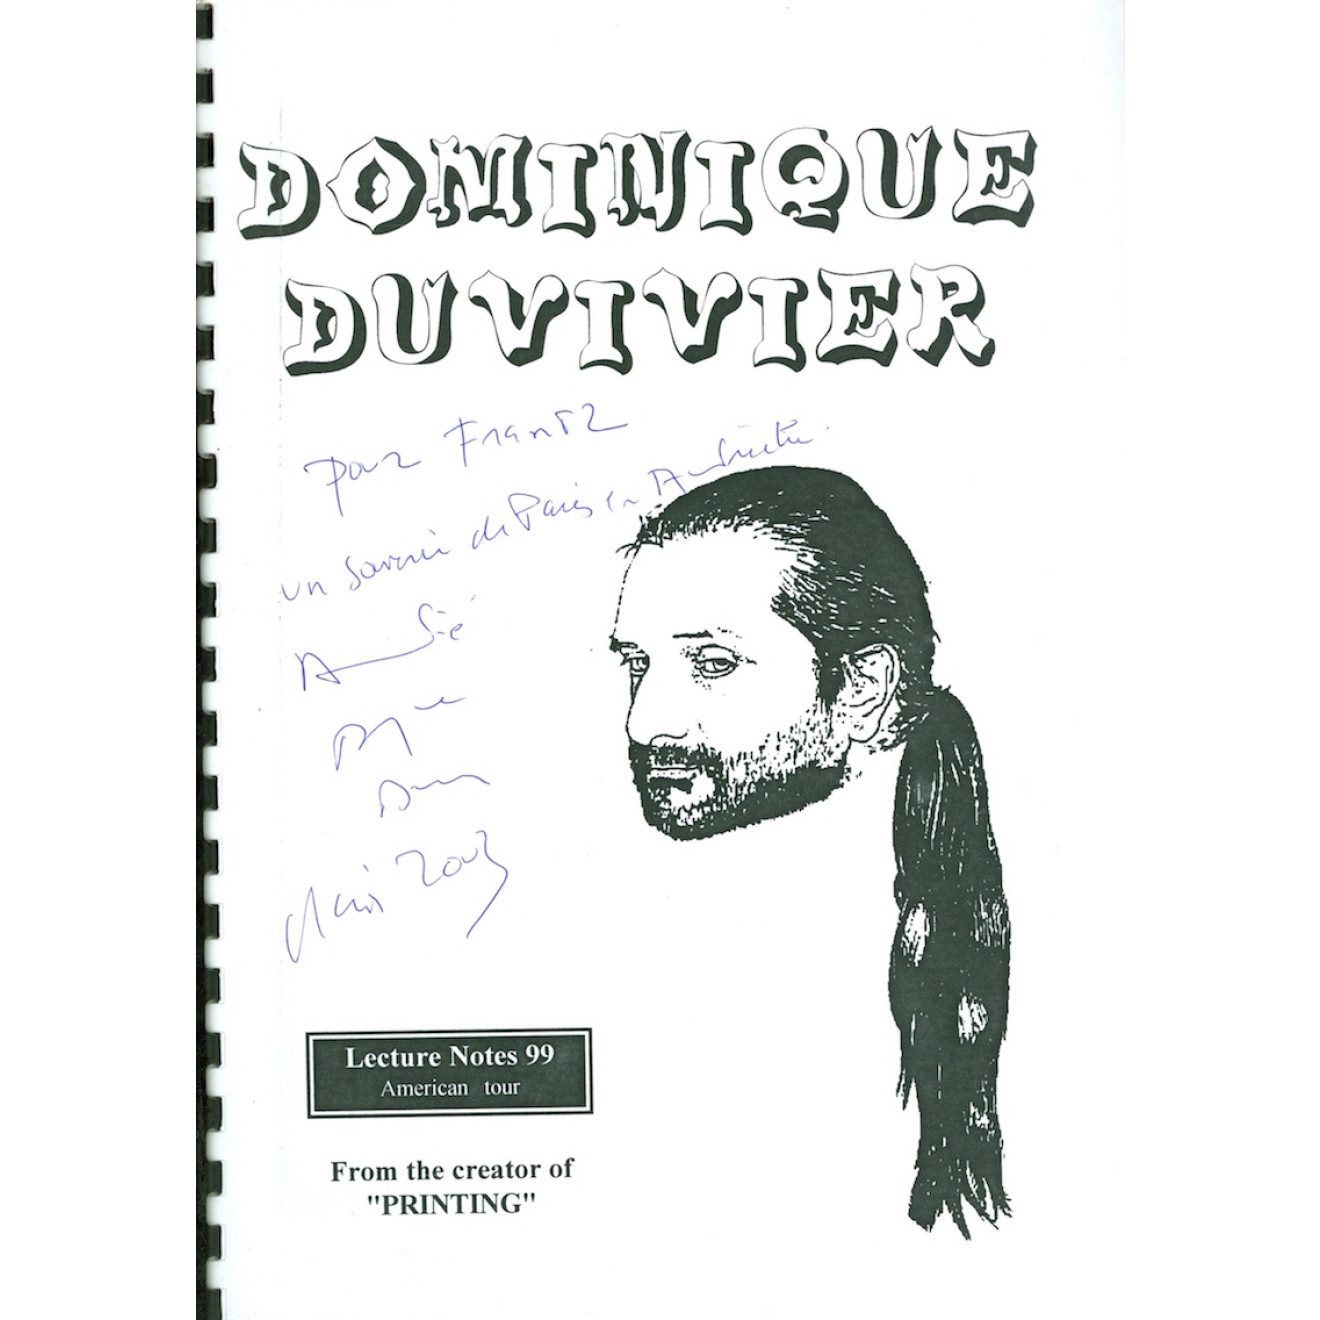 DOMINIQUE
DUVIVIER
Pour Frantz
un souvenir de Paris en
Lecture Notes 99
American tour
From the creator of
"PRINTING"